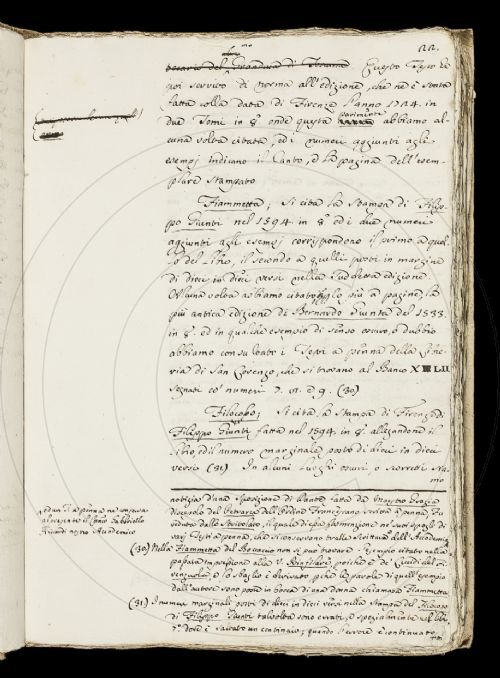 22.
Questo Testo ha
poi servito di norma all'edizione, che ne è stata
fatta colla data di Firenze l'anno 1724. in
due Tomi in 8. onde questa parimente abbiamo al-
cuna volta citata, ed i numeri aggiunti agli
esempj indicano il Canto, e la pagina dell'esem-
plare stampato
Fiammetta; Si cita la Stampa di Filip-
po Giunti nel 1594. in 8. ed i due numeri
aggiunti agli esempj corrispondono il primo a quel-
lo del Libro, il secondo a quelli posti in margine
di dieci in dieci versi nella suddetta edizione.
Alcuna volta abbiamo citato più a pagine, la
più antica edizione di Bernardo Giunta del 1533.
in 8. ed in qualche esempio di senso oscuro, o dubbio
abbiamo consultati i Testi a penna della Libre-
ria di San Lorenzo, che si trovano al Banco XLII
segnati co' numeri 7. VI. e 9. (30)
Filocopo; Si cita la Stampa di Firenze di
Filippo Giunti fatta nel 1594. in 8. allegandone il
Libro, ed il numero marginale posto di dieci in dieci
versi (31) In alcuni luoghi oscuri, o scorretti
notizia d'una sposizione di Dante fatta da Maestro Grazia
discepolo del Petrarca dell'Ordine Francescano scritta a penna,
veduta dallo Smeducci, il quale di essa fa menzione ne' suoi spogli di
varj Testi a penna, che si conservano tralle Scritture dell'Accademia
(30) Nella Fiammetta del Boccaccio non si può trovare l'esempio citato nella
passata impressione alla V.
dall'autore sono poste in bocca di una donna chiamata Fiammetta
(31) I numeri marginali posti di dieci in dieci versi nella Stampa del Filocopo
di Filippo Giunti talvolta sono errati, e specialmente nel Lib.
7. dove è saltato un centinaio; quando l'errore è continuato